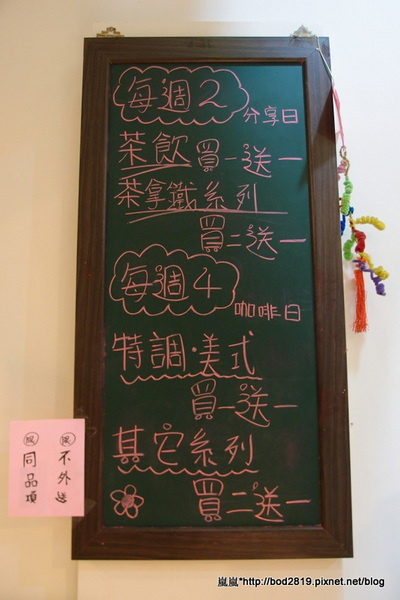 每週2
分享日
茶飲 買一送一
茶拿鐵系列
買二送一
每週4
咖啡日
特調·美式
買一送一
其它系列
買二送一
不外送
同品項
嵐嵐*http://bod2819.pixnet.net/blog